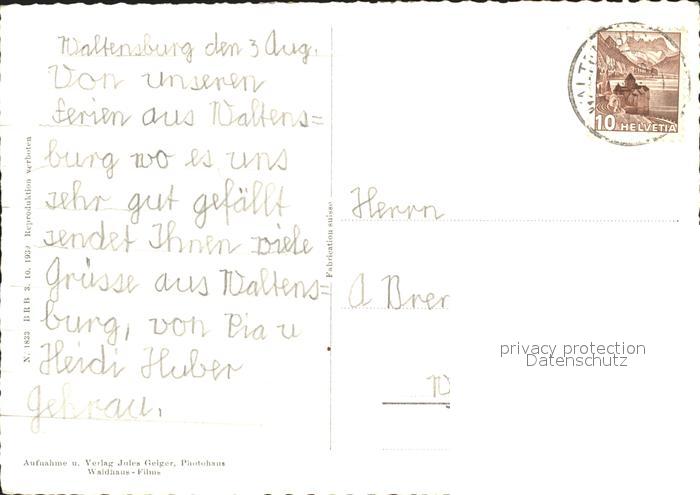 Waltensburg den 3 Aug.
Von unseren
Ferien aus Waltens=
burg wo es uns
sehr gut gefällt
sendet Ihnen viele
Grüsse aus Waltens=
burg, von Pia u
Heidi Huber
Herrn
A Brer
W
10 HELVETIA
privacy protection
Datenschutz
Fabrication suisse
N. 1833 B R B 3. 10. 1939 Reproduktion verboten
Aufnahme u. Verlag Jules Geiger, Photohaus
Waldhaus - Flims